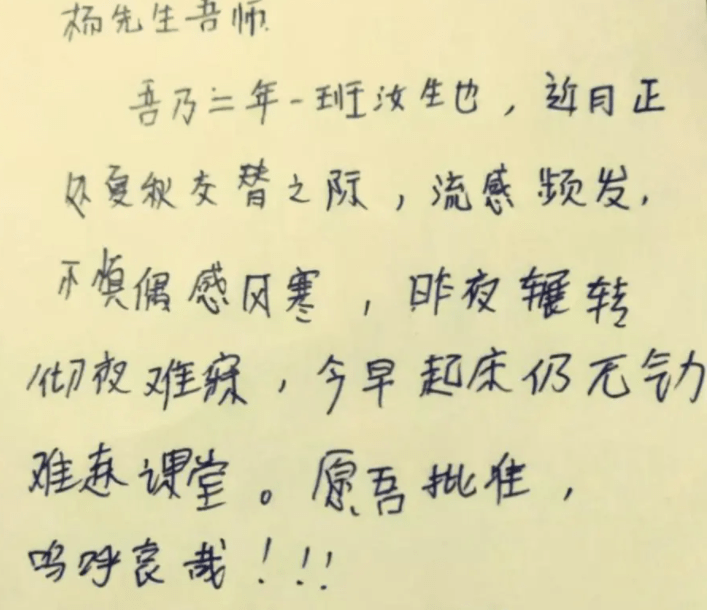 杨先生吾师
吾乃二年一班汝生也，近日正
夕夏秋交替之际，流感频发，
不慎偶感风寒，昨夜辗转
彻夜难寐，今早起床仍无力
难赴课堂。愿吾批准，
呜呼哀哉！！！